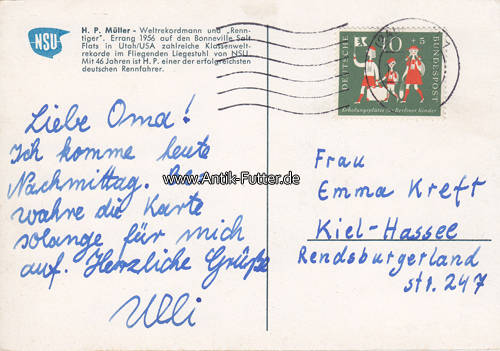 NSU
H. P. Müller - Weltrekordmann und „Renn-
tiger". Errang 1956 auf den Bonneville Salt
Flats in Utah/USA zahlreiche Klassenwelt-
rekorde im Fliegenden Liegestuhl von NSU.
Mit 46 Jahren ist H. P. einer der erfolgreichsten
deutschen Rennfahrer.
DEUTSCHE
BUNDESPOST
+5
Berliner Kinder
Liebe Oma!
Ich komme heute
Nachmittag. Be-
wahre die Karte
solange für mich
auf. Herzliche Grüße
Ulli
www.Antik-Futter.de
Frau
Emma Kreft
Kiel-Hassee
Rendsburgerland
str. 247